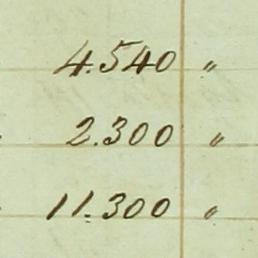 4.540 "
2.300 "
11.300 "